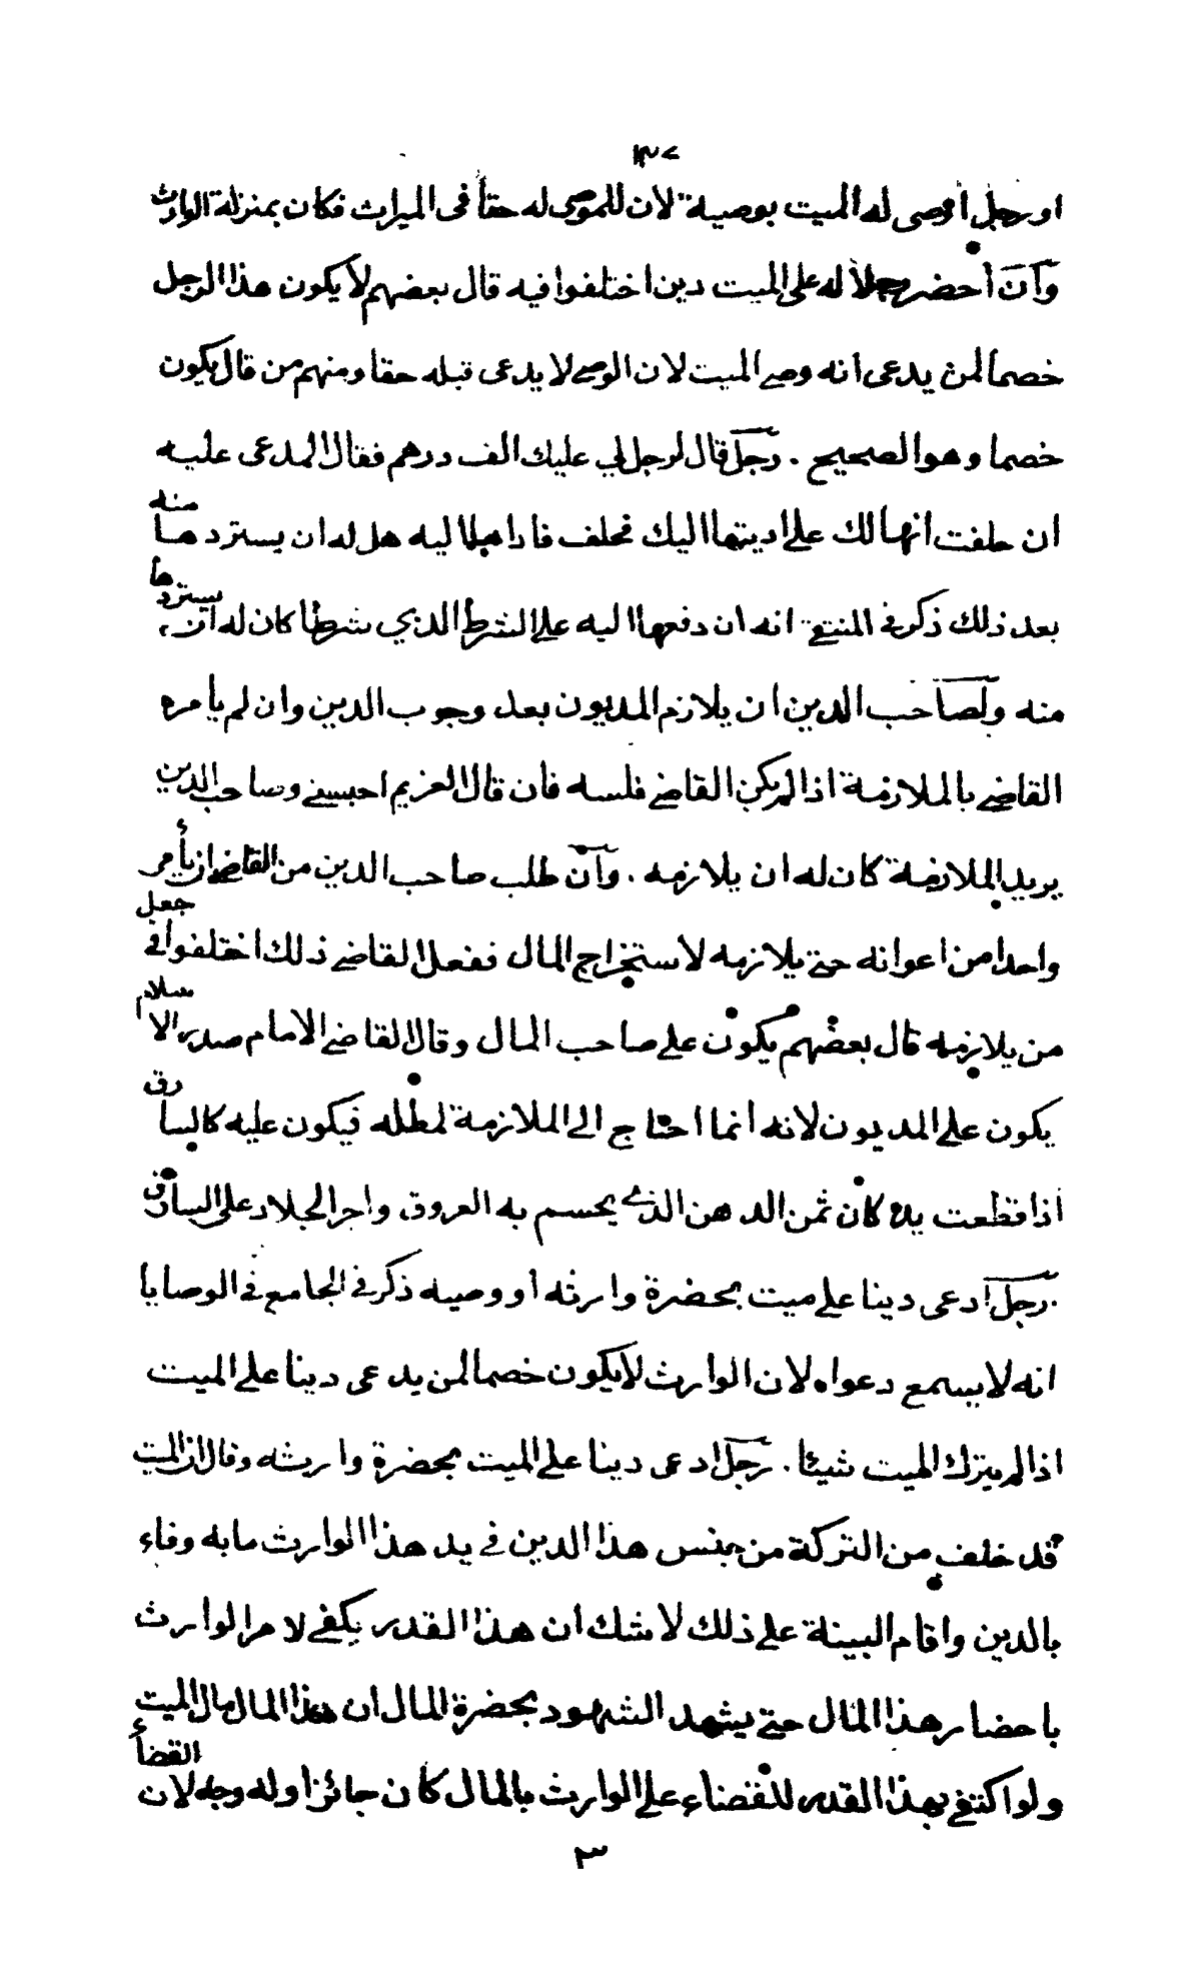 او رجل أوصى له الميت بوصية لان للموصى له حقاً فى الميراث فكان بمنزلة الوارث
وان أحضر رجلا له على الميت دين اختلفوا فيه قال بعضهم لا يكون هذا الرجل
خصما لمن يدعى انه وصى الميت لان الوصى لا يدعى قبله حقا ومنهم من قال يكون
خصما وهو الصحيح . رجل قال لرجل لي عليك الف درهم فقال المدعى عليه
ان حلفت انها لك على اديتها اليك فحلف فاداها اليه هل له ان يستردها منه
بعد ذلك ذكر في المنتقى انه ان دفعها اليه على الشرط الذي شرطا كان له ان يستردها
منه ولصاحب الدين ان يلازم المديون بعد وجوب الدين وان لم يأمره
القاضي بالملازمة اذا لم يكن القاضي فلسه فان قال الغريم احبسني وصاحب الدين
يريد الملازمة كان له ان يلازمه . وان طلب صاحب الدين من القاضي ان يأمر
واحدا من اعوانه حتى يلازمه لاستخراج المال ففعل القاضي ذلك اختلفوا في جعل
من يلازمه قال بعضهم يكون على صاحب المال وقال القاضي الامام صدر الاسلام
يكون على المديون لانه انما احتاج الى الملازمة لمطله فيكون عليه كالسارق
اذا قطعت يده كان ثمن الدهن الذي يحسم به العروق واجر الجلاد على السارق
. رجل ادعى دينا على ميت بحضرة وارثه أو وصيه ذكر في الجامع في الوصايا
انه لا يسمع دعواه لان الوارث لا يكون خصما لمن يدعى دينا على الميت
اذا لم يترك الميت شيئا . رجل ادعى دينا على الميت بحضرة وارثه وقال ان الميت
قد خلف من التركة من جنس هذا الدين في يد هذا الوارث ما به وفاء
بالدين واقام البينة على ذلك لا شك ان هذا القدر يكفي لامر الوارث
باحضار هذا المال حتى يشهد الشهود بحضرة المال ان هذا المال مال الميت
ولو اكتفي بهذا القدر للقضاء على الوارث بالمال كان جائزا وله وجه لان القضأ
٣